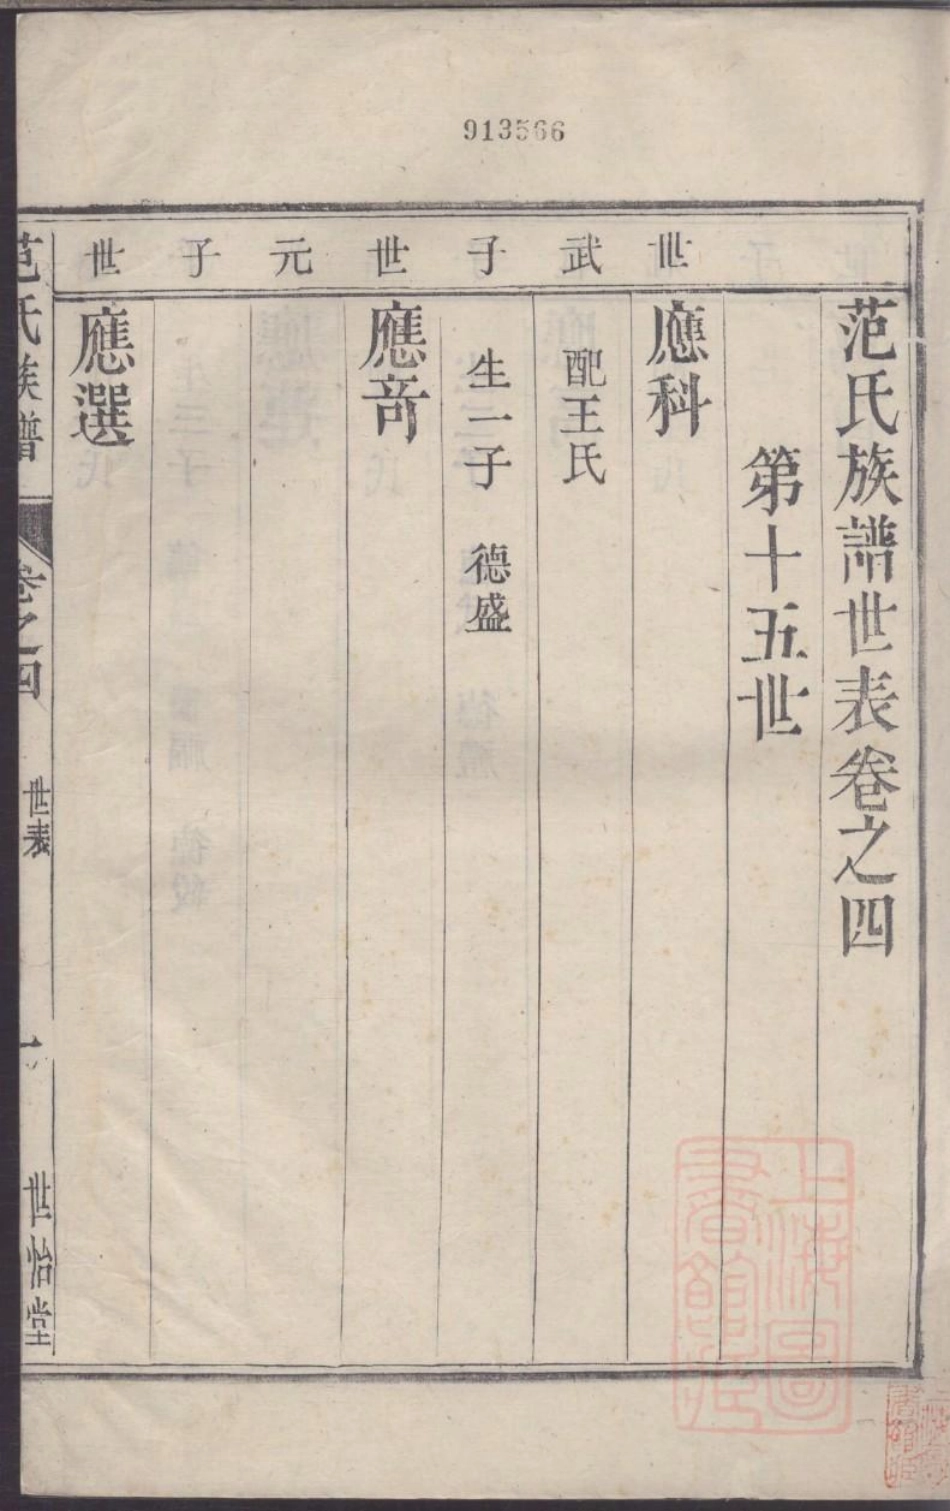 913566
范氏族譜世表卷之四
第十五世
世
應科
武
配王氏
子
生一子　德盛
世
應奇
元
子
世
應選
范氏族譜
卷之四
世表
一
世怡堂
上海圖
書館藏